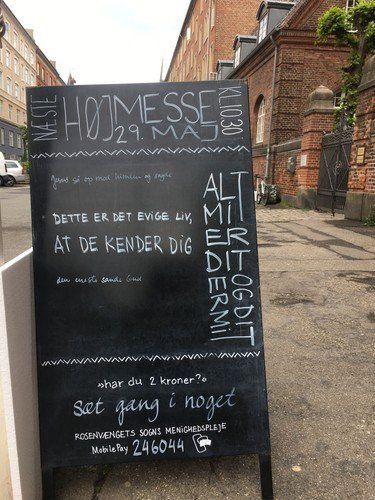 NÆSTE
HØJMESSE
KL.10:30
29. MAJ
Jesus så op mod himlen og sagde
DETTE ER DET EVIGE LIV,
AT DE KENDER DIG
den eneste sande Gud
ALT MIT ER DIT OG DIT ER MIT
»har du 2 kroner?«
sæt gang i noget
ROSENVÆNGETS SOGNS MENIGHEDSPLEJE
MobilePay 246044